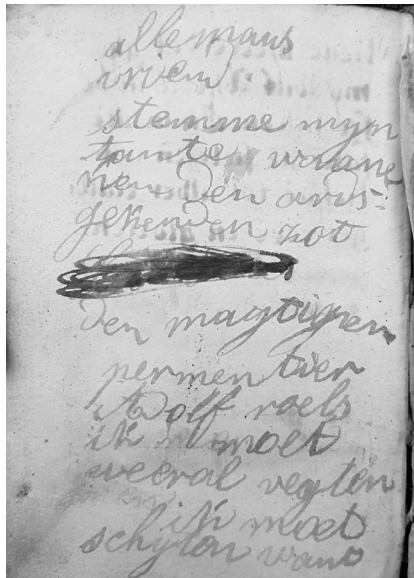 allemans
vriend
stemme myn
tante waane
nen den avis-
gekenden zot
den magtigen
permentier
Adolf roels
ik moet
weeral vegten
ik moet
schyten want